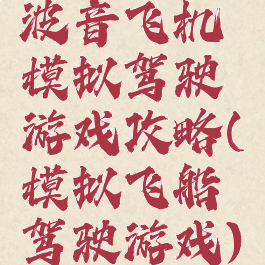 波音飞机
模拟驾驶
游戏攻略(
模拟飞船
驾驶游戏)